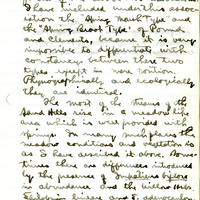 I have included under this assoc-
iation the "Spring Marsh Type" and
the "Spring Brook Type" of Pound
and Clements, because it is very
impossible to differentiate with
constancy between these two
types except in mere position.
Physiographically and ecologically
they are identical.
The most of the streams of the
Sand Hills rise in a meadow like
area which is well provided with
springs. In many such places the
meadow conditions and vegetation is
as I have described it above. Some-
times there are differences introduced
by the presence of Impatiens biflora
in abundance and the willow herbs.
Epilobium lineare and E. adenocaulon